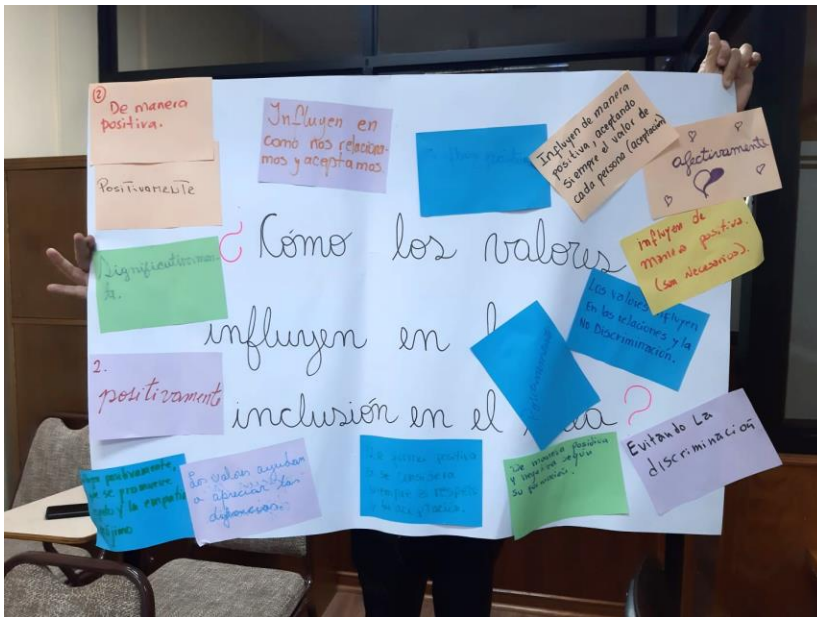 ② De manera
positiva.
Positivamente
Influyen en
como nos relaciona-
mos y aceptamos.
Influyen de manera
positiva, aceptando
siempre el valor de
cada persona (aceptación)
afectivamente
influyen de
manera positiva.
(son necesarios).
Significativamen-
te.
¿Cómo los valores
influyen en
inclusión en el ?
Los valores influyen
En las relaciones y la
No Discriminación.
2.
positivamente
positivamente,
se promueve
y la empatía
Los valores ayudan
a apreciar las
diferencias
De manera positiva
siempre el respeto
y la aceptación.
De manera positiva
y negativa según
su
Evitando La
discriminación